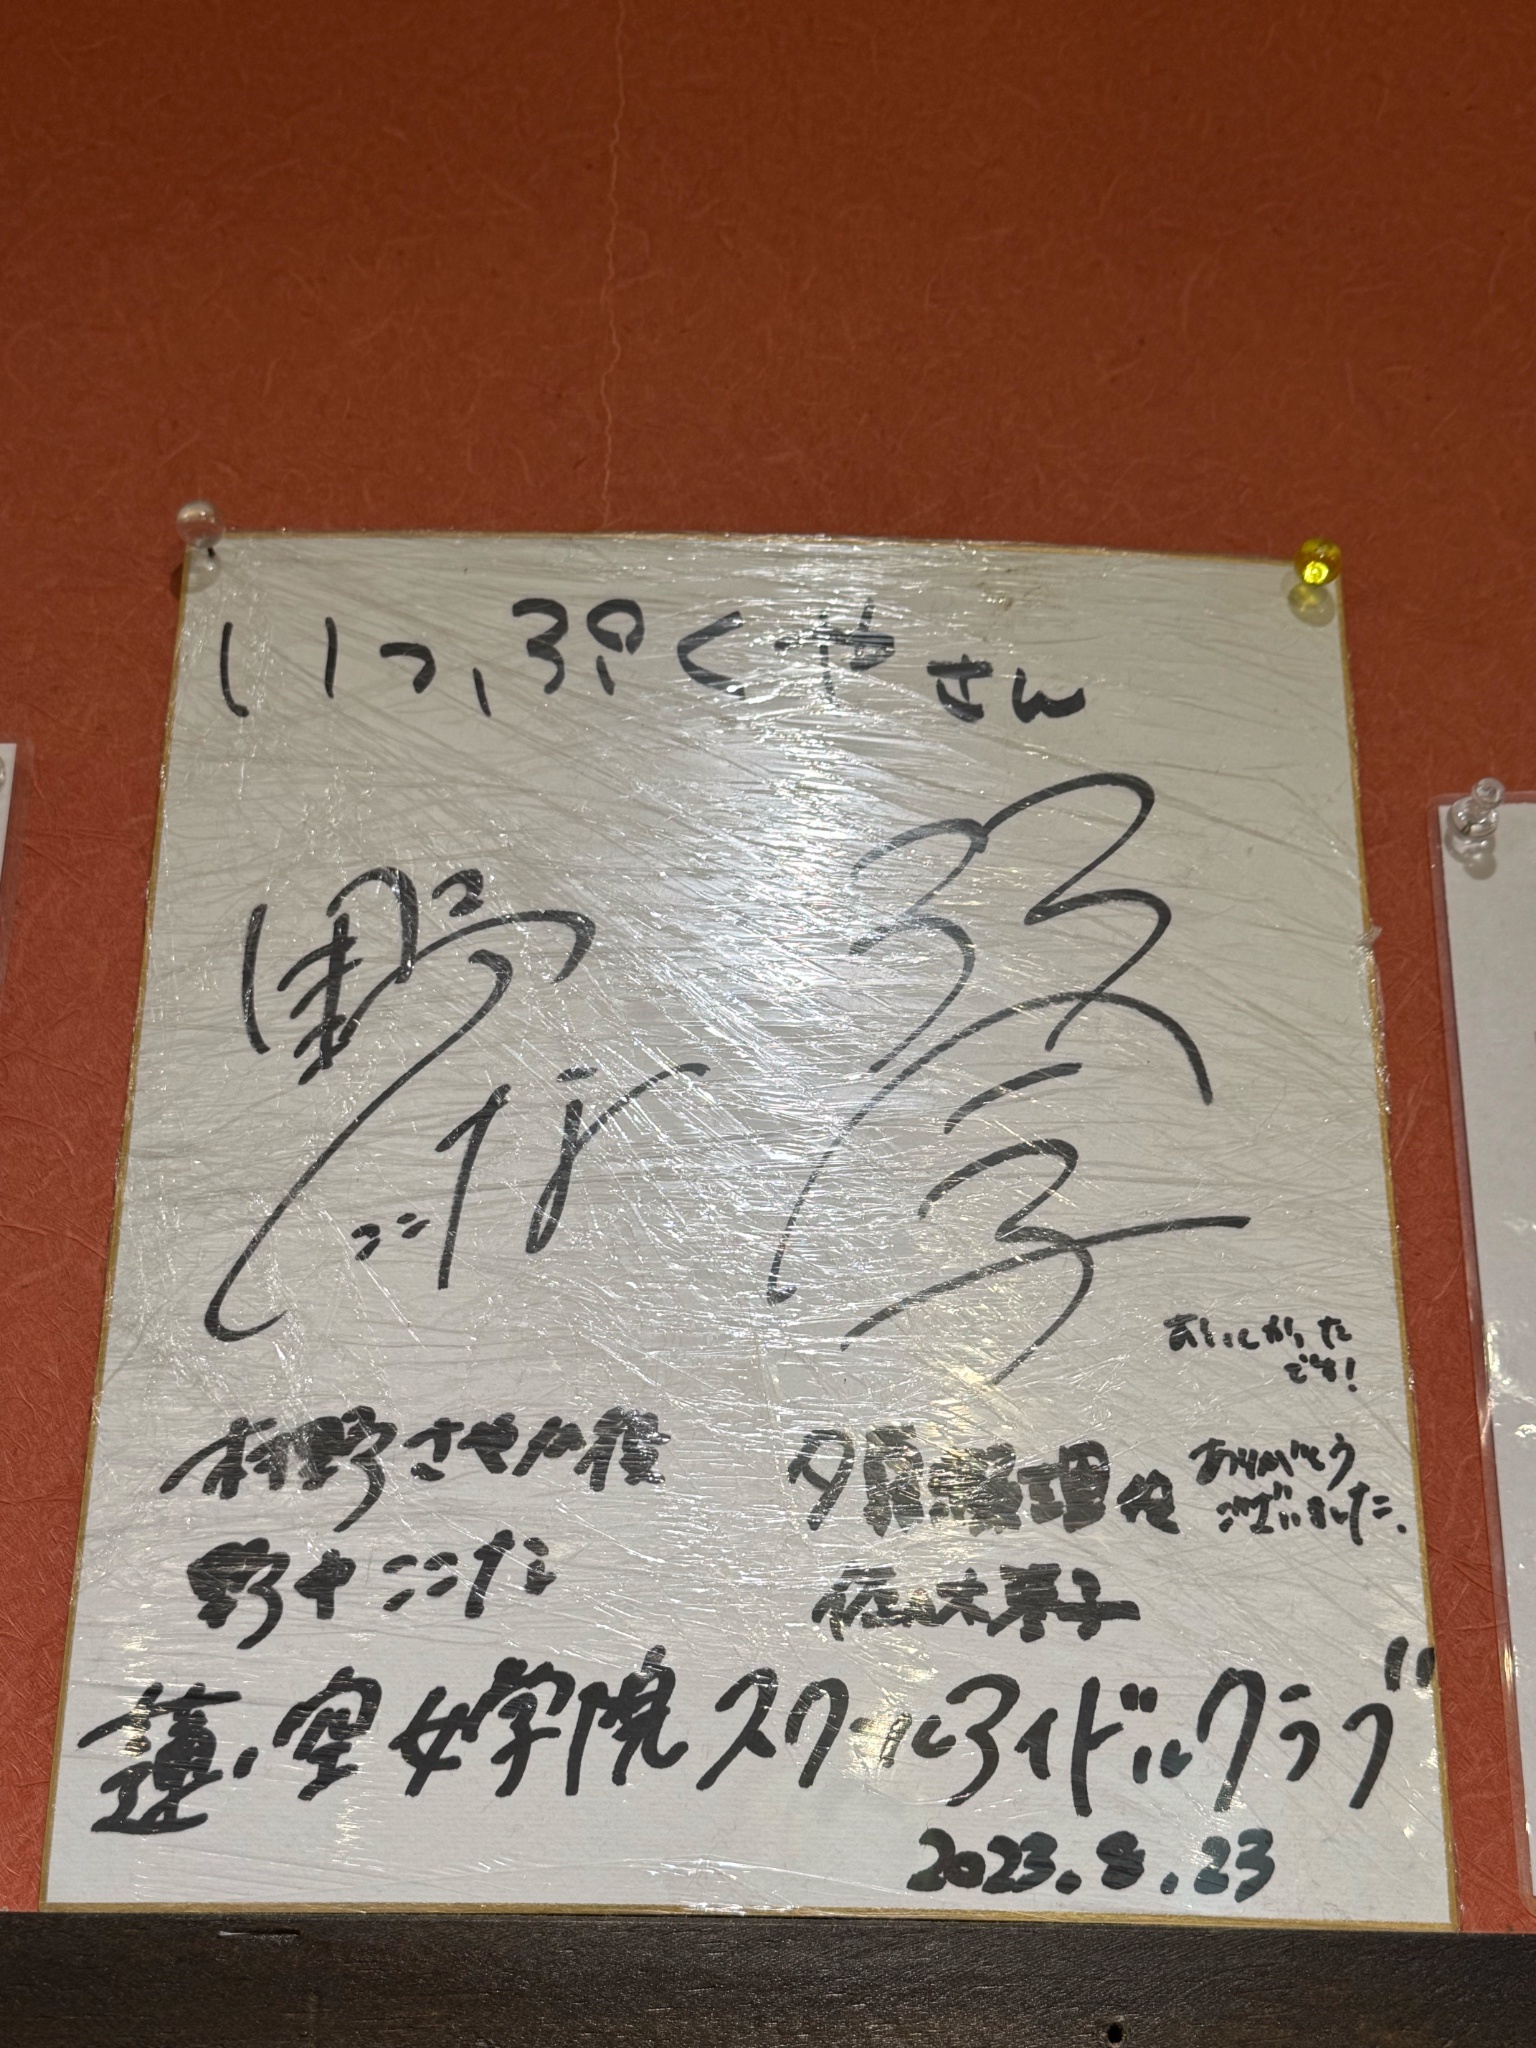 いっぷくやさん
おいしかった
です!
村野さやか役
夕霧綴理役
ありがとう
ございました。
野中ここな
佐々木琴子
蓮ノ空女学院スクールアイドルクラブ
2023.8.23